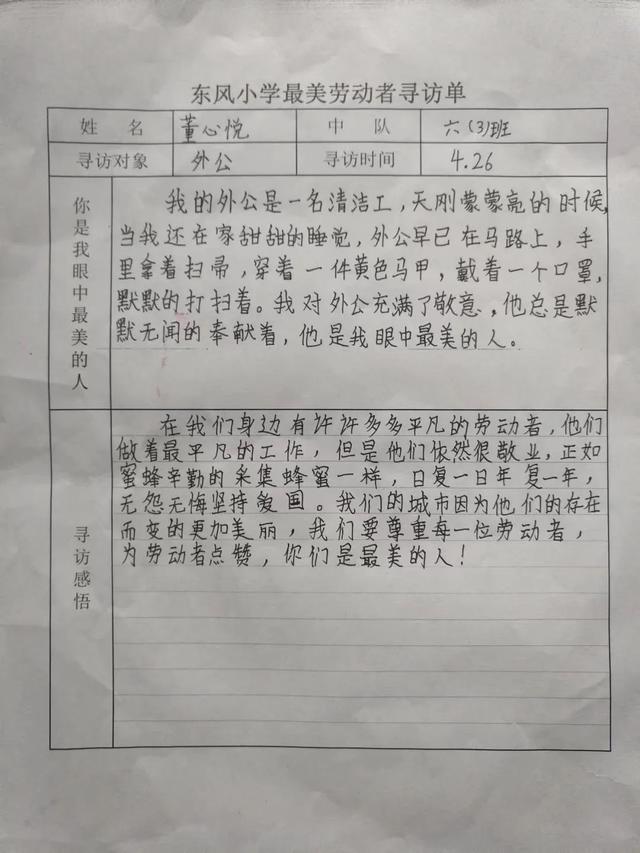 东风小学最美劳动者寻访单
姓 名 董心悦 中 队 六(3)班
寻访对象 外公 寻访时间 4.26
你是我眼中最美的人
我的外公是一名清洁工,天刚蒙蒙亮的时候,
当我还在家甜甜的睡觉,外公早已在马路上,手
里拿着扫帚,穿着一件黄色马甲,戴着一个口罩,
默默的打扫着。我对外公充满了敬意,他总是默
默无闻的奉献着,他是我眼中最美的人。
寻访感悟
在我们身边有许许多多平凡的劳动者,他们
做着最平凡的工作,但是他们依然很敬业,正如
蜜蜂辛勤的采集蜂蜜一样,日复一日年复一年,
无怨无悔坚持爱国。我们的城市因为他们的存在
而变的更加美丽,我们要尊重每一位劳动者,
为劳动者点赞,你们是最美的人!